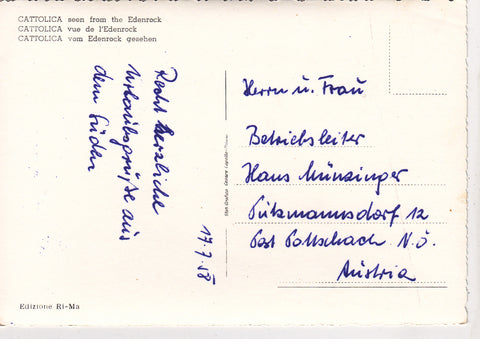 CATTOLICA seen from the Edenrock
CATTOLICA vue de l'Edenrock
CATTOLICA vom Edenrock gesehen
Recht herzliche
Urlaubsgrüße aus
dem Süden
17.7.58
Herrn u. Frau
Betriebsleiter
Hans Münzinger
Putzmannsdorf 12
Post Pottschach N.Ö.
Austria
Edizione Ri-Ma